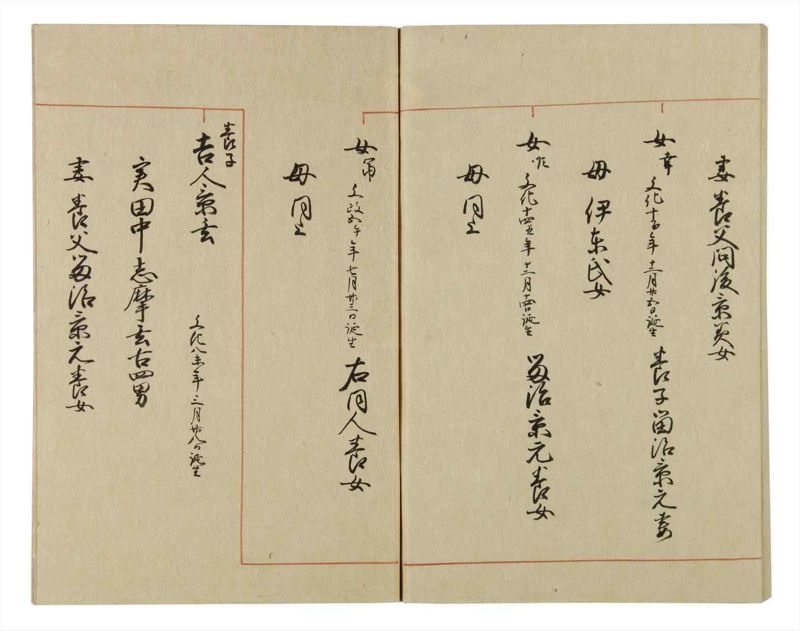 妻 養父同後京美女
女 幸 文化十一年十二月廿五日誕生 養子富治京元妻
母 伊東氏女
女 文化十四丑年十二月十四日誕生 富治京元養女
母 同上
女 文政五午年七月廿三日誕生 右同人養女
母 同上
養子
吉人京玄 文化八未年三月廿八日誕生
実田中志摩玄古四男
妻 養父富治京元養女